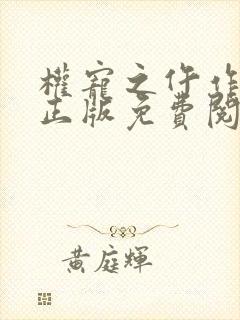 權寵之仵作
正版免費閱
黃庭輝